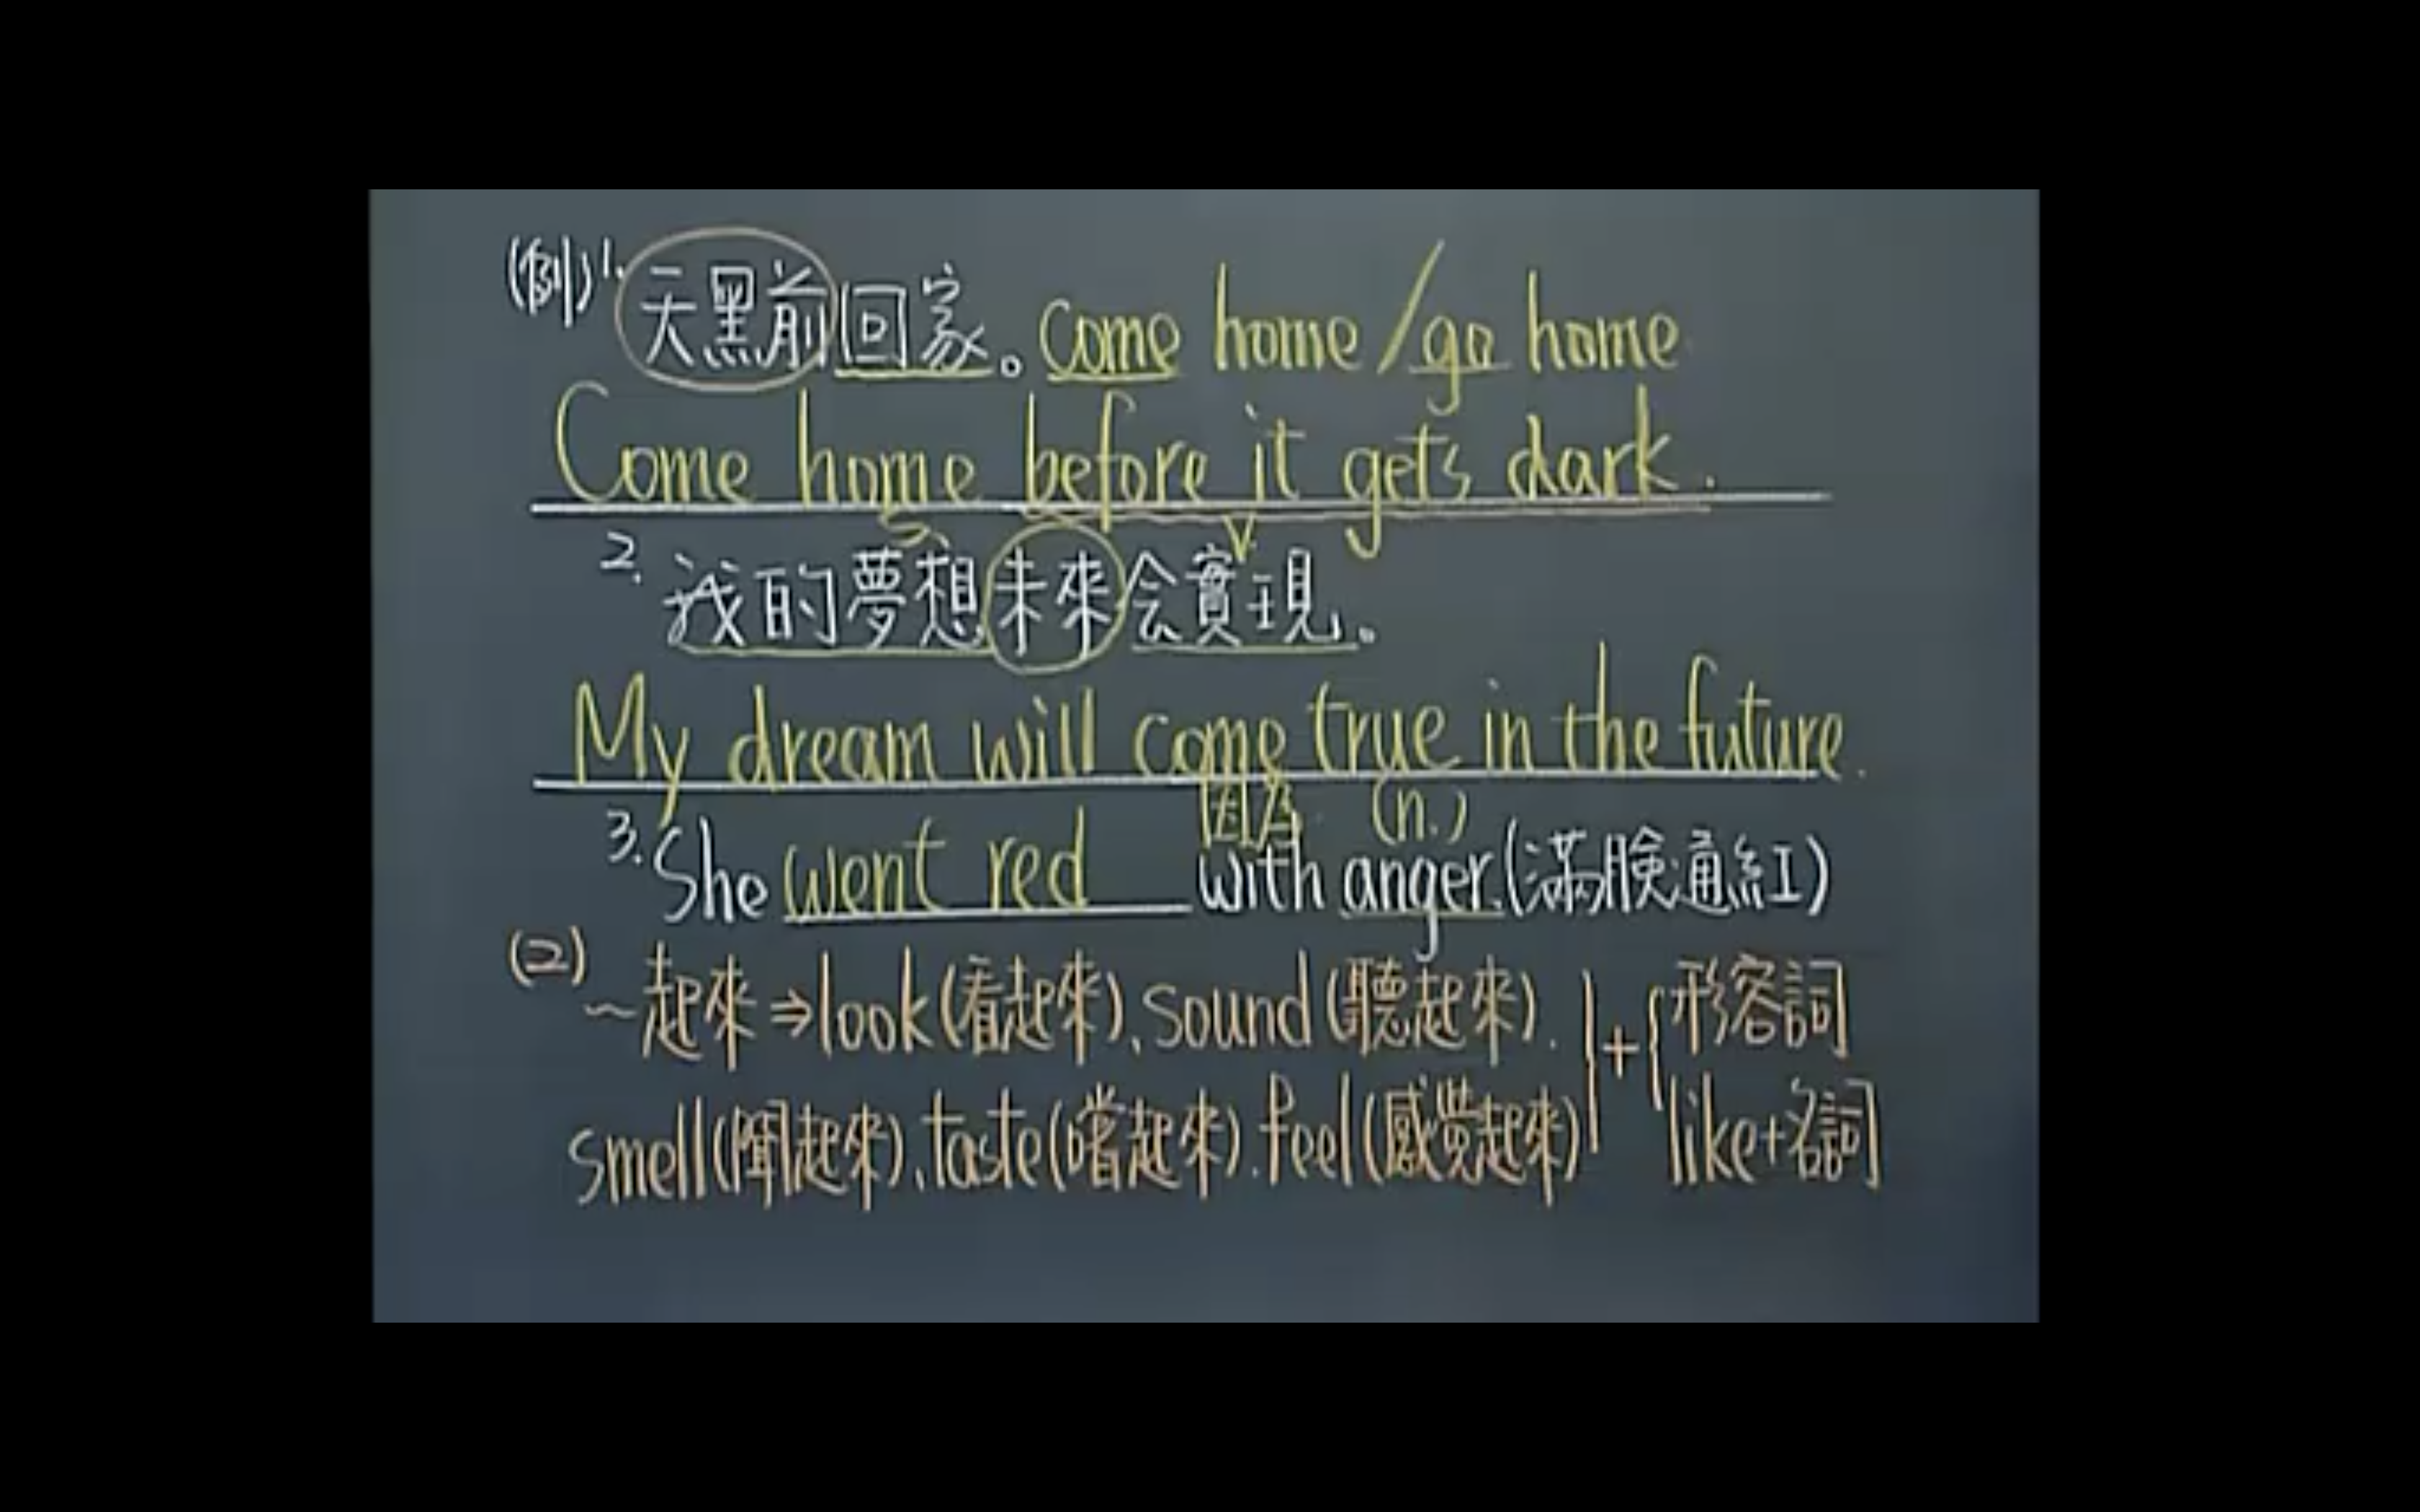 (例)1. 天黑前回家。come home/go home
Come home before it gets dark.
S. V.
2. 我的夢想未來会實現。
My dream will come true in the future.
因為 (n.)
3. She went red with anger.(滿臉通紅)
(2) ~起來⇒look(看起來)、sound(聽起來).
smell(聞起來)、taste(嚐起來).feel(感覺起來)}+{形容詞
like+名詞